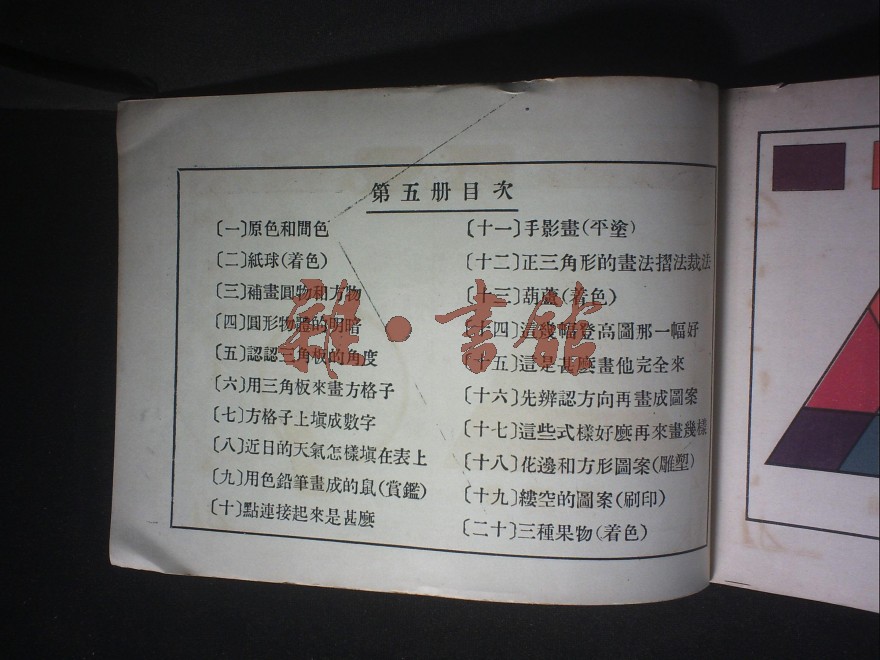 第五册目次
〔一〕原色和間色
〔二〕紙球(着色)
〔三〕補畫圓物和方物
〔四〕圓形物體的明暗
〔五〕認認三角板的角度
〔六〕用三角板來畫方格子
〔七〕方格子上塡成數字
〔八〕近日的天氣怎樣塡在表上
〔九〕用色鉛筆畫成的鼠(賞鑑)
〔十〕點連接起來是甚麼
〔十一〕手影畫(平塗)
〔十二〕正三角形的畫法摺法裁法
〔十三〕葫蘆(着色)
〔十四〕這幾幅登高圖那一幅好
〔十五〕這是甚麼畫他完全來
〔十六〕先辨認方向再畫成圖案
〔十七〕這些式樣好麼再來畫幾樣
〔十八〕花邊和方形圖案(雕塑)
〔十九〕縷空的圖案(刷印)
〔二十〕三種果物(着色)
雜·書館